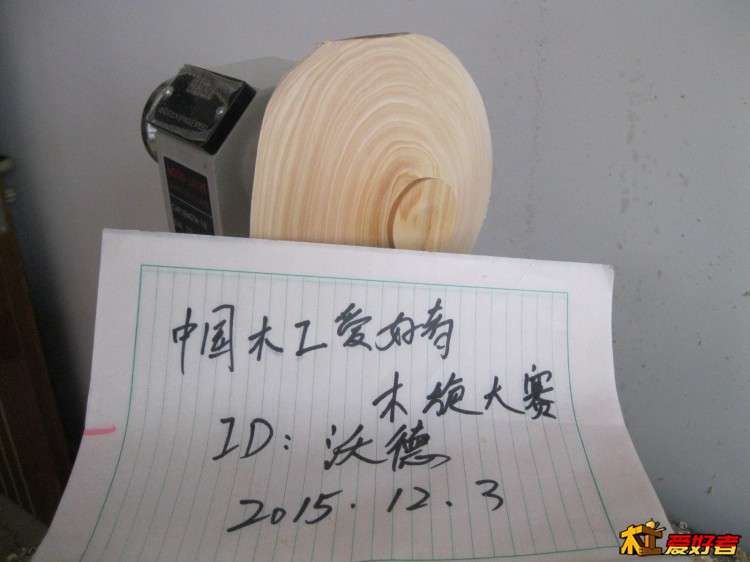 中国木工爱好者
木旋大赛
ID: 沃德
2015.12.3
木工爱好者